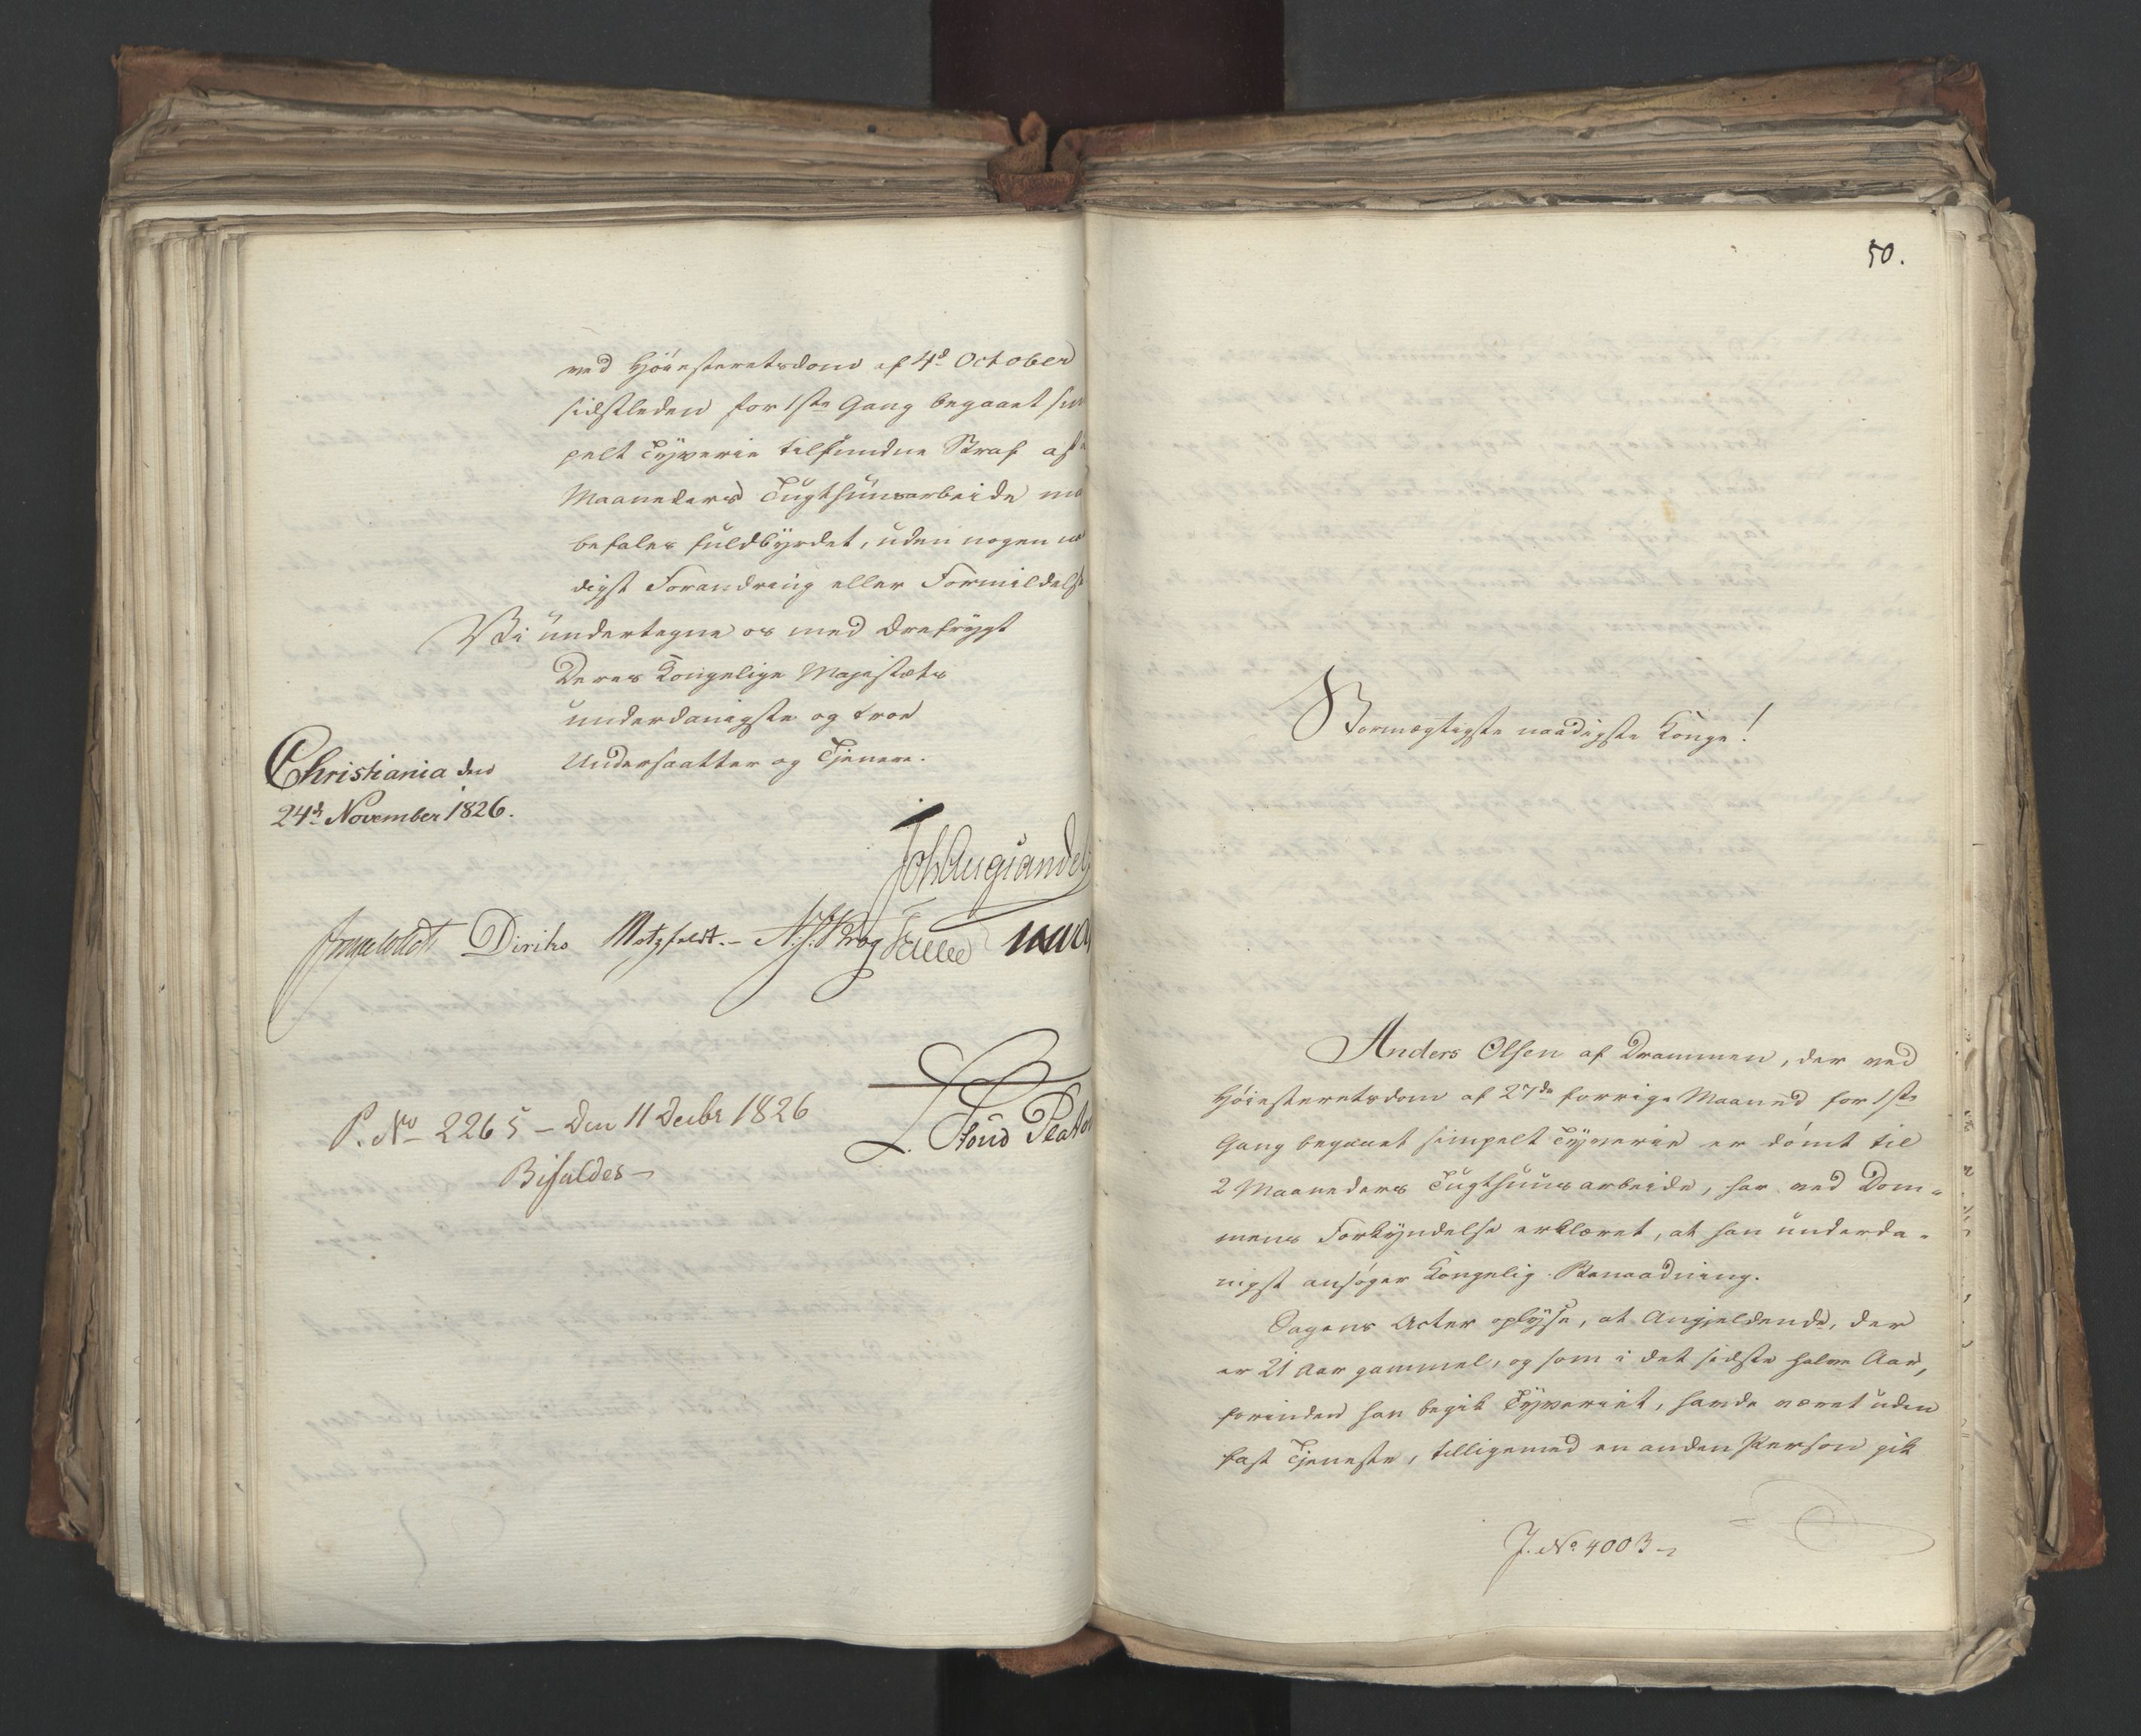 ved Höiesteretsdom af 4d October
sidstleden for 1ste Gang begaaet sim
pelt Tyverie tilfundne Straf af
Maaneders Tugthuusarbeide maa
befales fuldbyrdet, uden nogen naa
digst Forandring eller Formildelse
Vi undertegne os med Ærefrygt
Deres Kongelige Majestæts
underdanigste og troe
Undersaatter og Tjenere.
Christiania den
24d November 1826.
Joh Aug Sandels
Diriks Motzfeldt.- N. J. Krog
L. Stoud Platou
P. No 2265 - den 11 Decbr 1826
Bifaldes
50.
Stormægtigste naadigste Konge!
Anders Olsen af Drammen, der ved
Höiesteretsdom af 27de forrige Maaned for 1ste
Gang begaaet simpelt Tyverie er dömt til
2 Maaneders Tugthuusarbeide, har ved Dom-
mens Forkyndelse erklæret, at han underda-
nigst ansöger Kongelig Benaadning.
Sagens Acter oplyse, at Angjeldende, der
er 21 Aar gammel, og som i det sidste halve Aar,
forinden han begik Tyveriet, havde været uden
fast Tjeneste, tilligemed en anden Person gik
J. No 4003